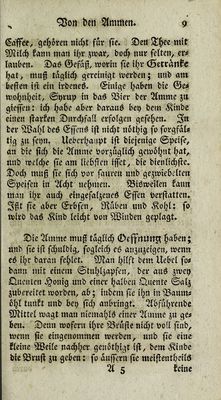 Von den Ammen. 9
Caffee, gehören nicht für sie. Den Thee mit
Milch kann man ihr zwar, doch nur selten, er-
lauben. Das Gefäß, worin sie ihr Getränke
hat, muß täglich gereinigt werden; und am
besten ist ein irdenes. Einige haben die Ge-
wohnheit, Syrup in das Bier der Amme zu
gießen: ich habe aber daraus bey dem Kinde
einen starken Durchfall erfolgen gesehen. In
der Wahl des Essens ist nicht nöthig so sorgfäl-
tig zu seyn. Ueberhaupt ist diejenige Speise,
an die sich die Amme vorzüglich gewöhnt hat,
und welche sie am liebsten isset, die dienlichste.
Doch muß sie sich vor sauren und gezwiebelten
Speisen in Acht nehmen. Bisweilen kann
man ihr auch eingesalzenes Essen verstatten.
Ißt sie aber Erbsen, Rüben und Kohl: so
wird das Kind leicht von Winden geplagt.
Die Amme muß täglich Oeffnung haben;
und sie ist schuldig, sogleich es anzuzeigen, wenn
es ihr daran fehlet. Man hilft dem Uebel so-
dann mit einem Stuhlzapfen, der aus zwey
Quenten Honig und einer halben Quente Salz
zubereitet worden, ab; indem sie ihn in Baum-
öhl tunkt und bey sich anbringt. Abführende
Mittel wagt man niemahls einer Amme zu ge-
ben. Denn wofern ihre Brüste nicht voll sind,
wenn sie eingenommen werden, und sie eine
kleine Weile nachher genöthigt ist, dem Kinde
die Brust zu geben: so äussern sie meistentheils
A 5 keine